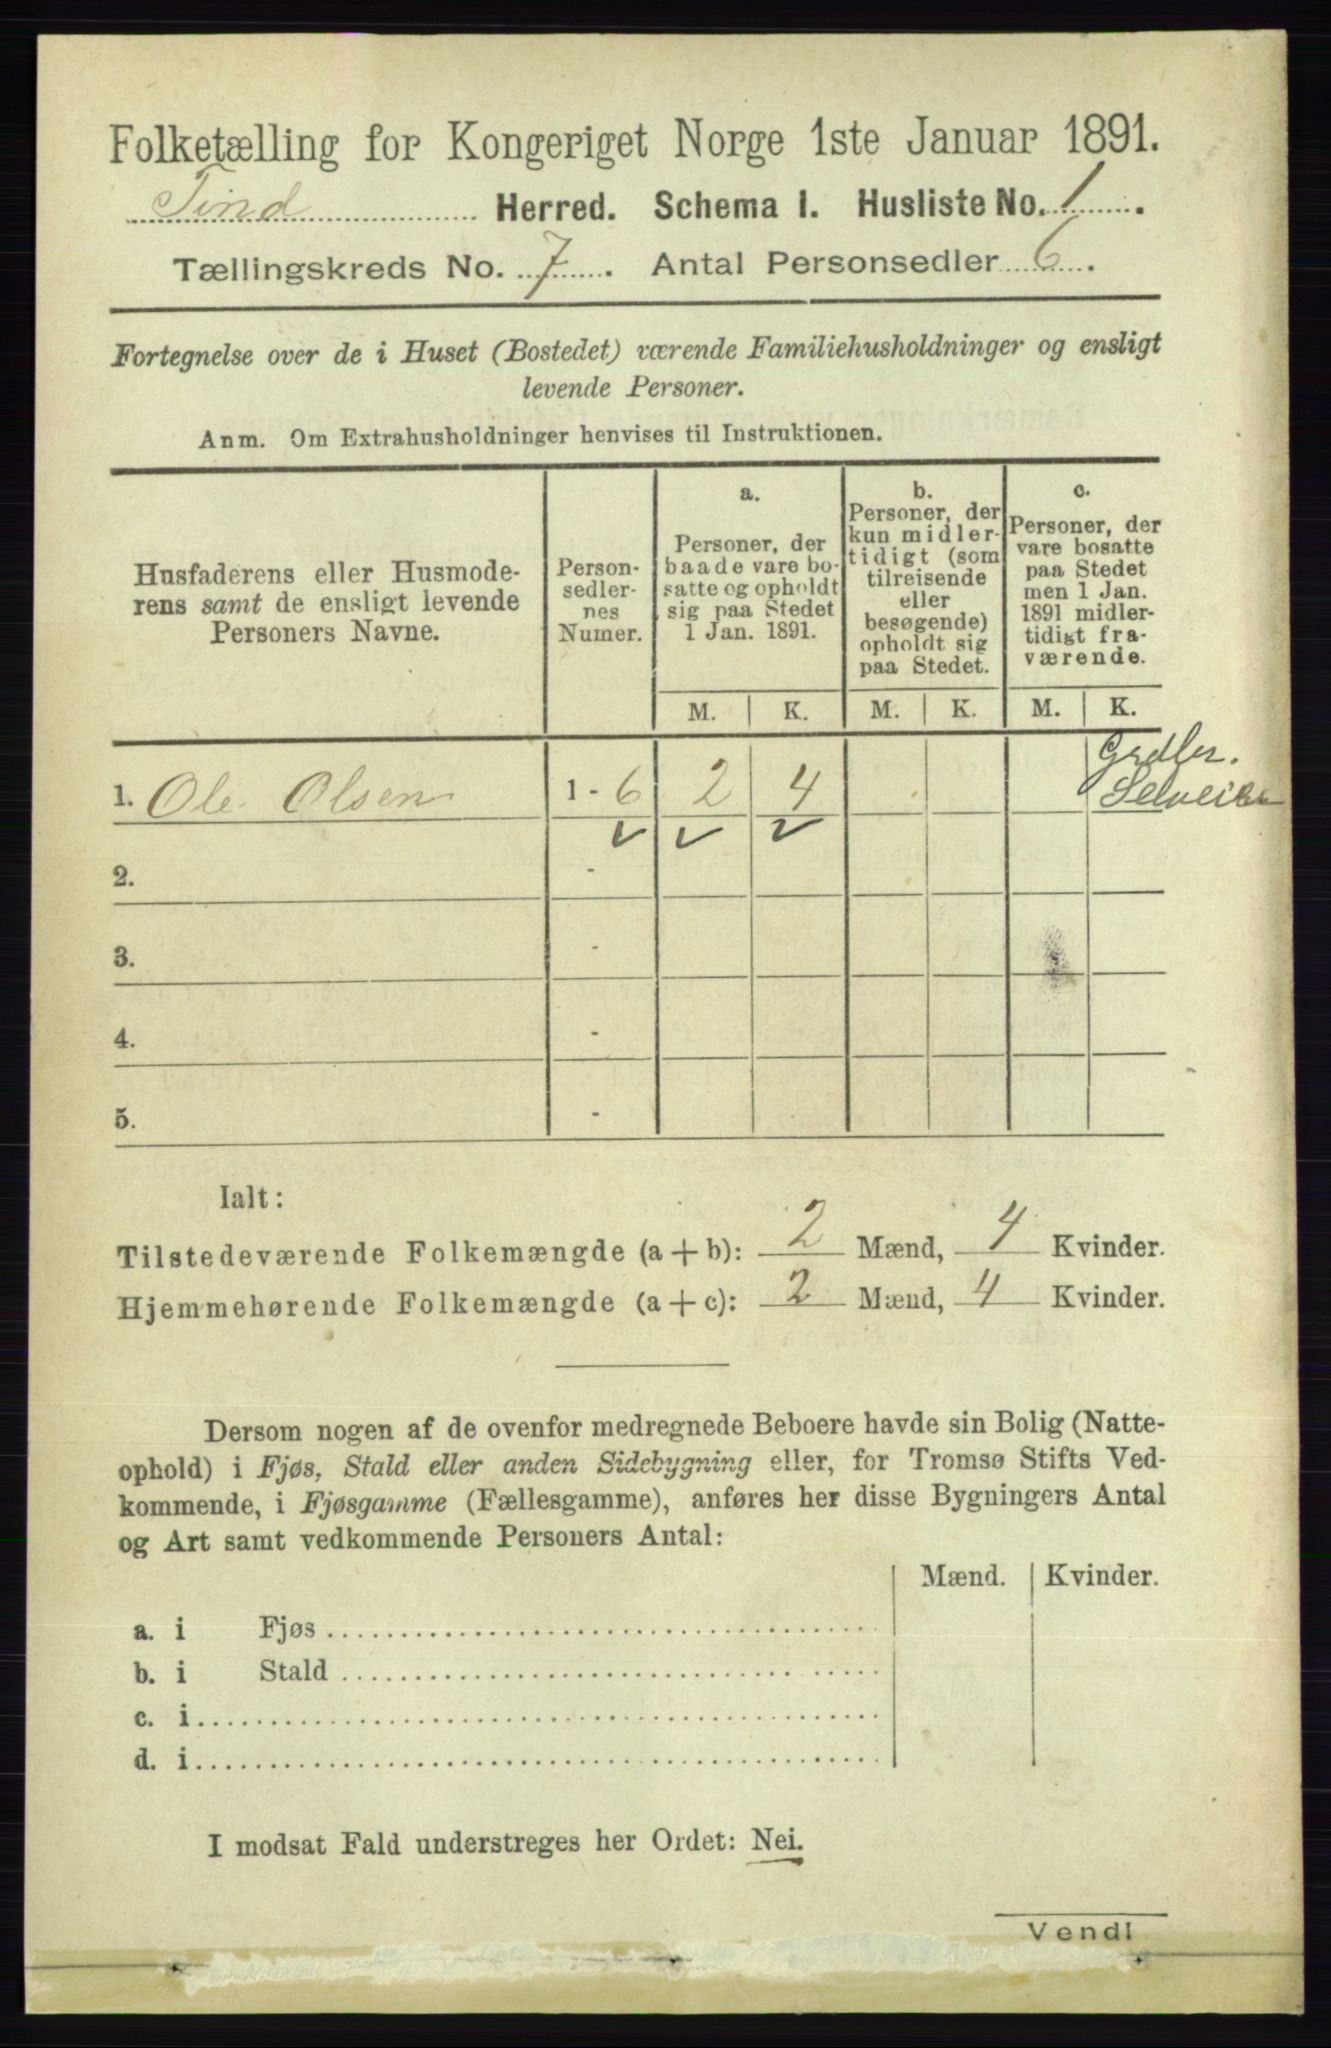 Folketælling for Kongeriget Norge 1ste Januar 1891.
Tind Herred. Schema I. Husliste No. 1.
Tællingskreds No. 7. Antal Personsedler 6.
Fortegnelse over de i Huset (Bostedet) værende Familiehusholdninger og ensligt
levende Personer.
Anm. Om Extrahusholdninger henvises til Instruktionen.
Husfaderens eller Husmode-
rens samt de ensligt levende
Personers Navne.
Person-
sedler-
nes
Numer.
a.
Personer, der
baade vare bo-
satte og opholdt
sig paa Stedet
1 Jan. 1891.
b.
Personer, der
kun midler-
tidigt (som
tilreisende
eller
besøgende)
opholdt sig
paa Stedet.
c.
Personer, der
vare bosatte
paa Stedet
men 1 Jan.
1891 midler-
tidigt fra-
værende.
M. K. M. K. M. K.
1. Ole Olsen 1 - 6 2 4
2. -
3. -
4. -
5. -
Ialt:
Tilstedeværende Folkemængde (a + b): 2 Mænd, 4 Kvinder.
Hjemmehørende Folkemængde (a + c): 2 Mænd, 4 Kvinder.
Dersom nogen af de ovenfor medregnede Beboere havde sin Bolig (Natte-
ophold) i Fjøs, Stald eller anden Sidebygning eller, for Tromsø Stifts Ved-
kommende, i Fjøsgamme (Fællesgamme), anføres her disse Bygningers Antal
og Art samt vedkommende Personers Antal:
Mænd. Kvinder.
a. i Fjøs
b. i Stald
c. i
d. i
I modsat Fald understreges her Ordet: Nei.
Vend!